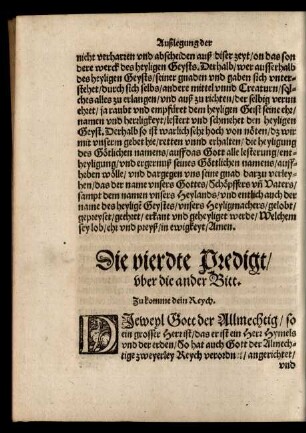 Außlegung der
nicht verharren vnd abscheiden auß diser zeyt/on das son
dere werck des heyligen Geysts. Derhalb/wer ausserhalb
des heyligen Geysts/seiner gnaden vnd gaben sich vnter-
stehet/durch sich selbs/andere mittel vnnd Creaturn/sol-
ches alles zu erlangen/vnd auß zu richten/der selbig verun
ehret/ja raubt vnd empfüret dem heyligen Geist seine ehr/
namen vnd herligkeyt/lestert vnd schmehet den heyligen
Geyst. Derhalb so ist warlich sehr hoch von nöten/dz wir
mit vnserm gebet hie/retten vnnd erhalten/die heyligung
des Götlichen namens/auff das Gott alle lesterung/ent-
heyligung/vnd ergernuß seines Göttlichen namens/auff-
heben wölle/vnd dargegen vns seine gnad darzu verley-
hen/das der name vnsers Gottes/Schöpffers vñ Vaters/
sampt dem namen vnsers Heylands/vnd entlich auch der
name des heyligē Geystes/vnsers Heyligmachers/gelobt/
gepreyset/geehret/erkant vnd geheyliget werde/Welchem
sey lob/ehr vnd preyß/in ewigkeyt/Amen.
Die vierdte Predigt/
vber die ander Bitt.
Zu komme dein Reych.
DJeweyl Gott der Allmechtig/so
ein grosser Herr ist/das er ist ein Herr Hymels
vnd der erden/So hat auch Gott der Almech-
tige zweyerley Reych verordnet/angerichtet/
vnd